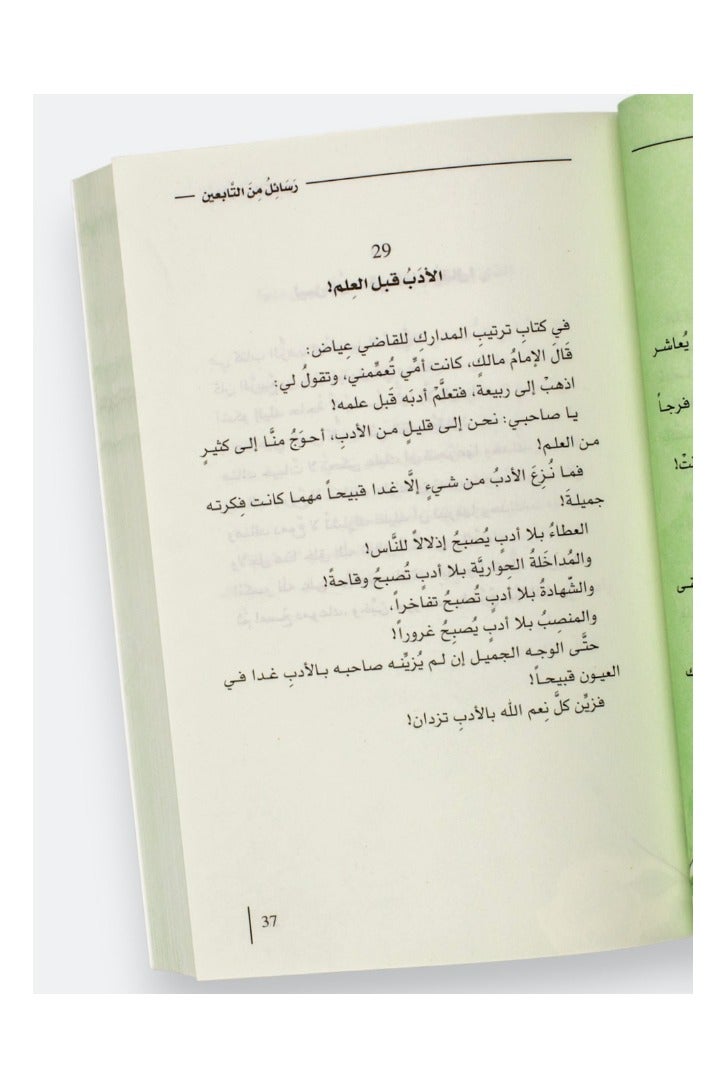 رَسَائِلُ مِنَ التَّابعين
29
الأدَبُ قبل العِلم!
في كتابِ ترتيبِ المداركِ للقاضي عِياض:
قَالَ الإمامُ مالك، كانت أمِّي تُعمِّمني، وتقولُ لي:
اذهبْ إلى ربيعةٍ، فتعلَّمْ أدبَه قَبل علمه!
يا صاحبي: نحن إلى قليلٍ من الأدبِ، أحوَجُ منَّا إلى كثيرٍ
من العلم!
فما نُزِعَ الأدبُ من شيءٍ إلَّا غدا قبيحاً مهما كانت فِكرته
جميلةً!
العطاءُ بلا أدبٍ يُصبحُ إذلالاً للنَّاس!
والمُداخَلةُ الحِواريَّة بلا أدبٍ تُصبحُ وقاحةً!
والشّهادةُ بلا أدبٍ تُصبحُ تفاخراً،
والمنصِبُ بلا أدبٍ يُصبِحُ غروراً!
حتَّى الوجه الجميل إن لم يُزيِّنه صاحبه بالأدبِ غدا في
العيون قبيحاً!
فزيِّن كلَّ نِعم الله بالأدبِ تزدان!
37
يُعاشر
فرجاً